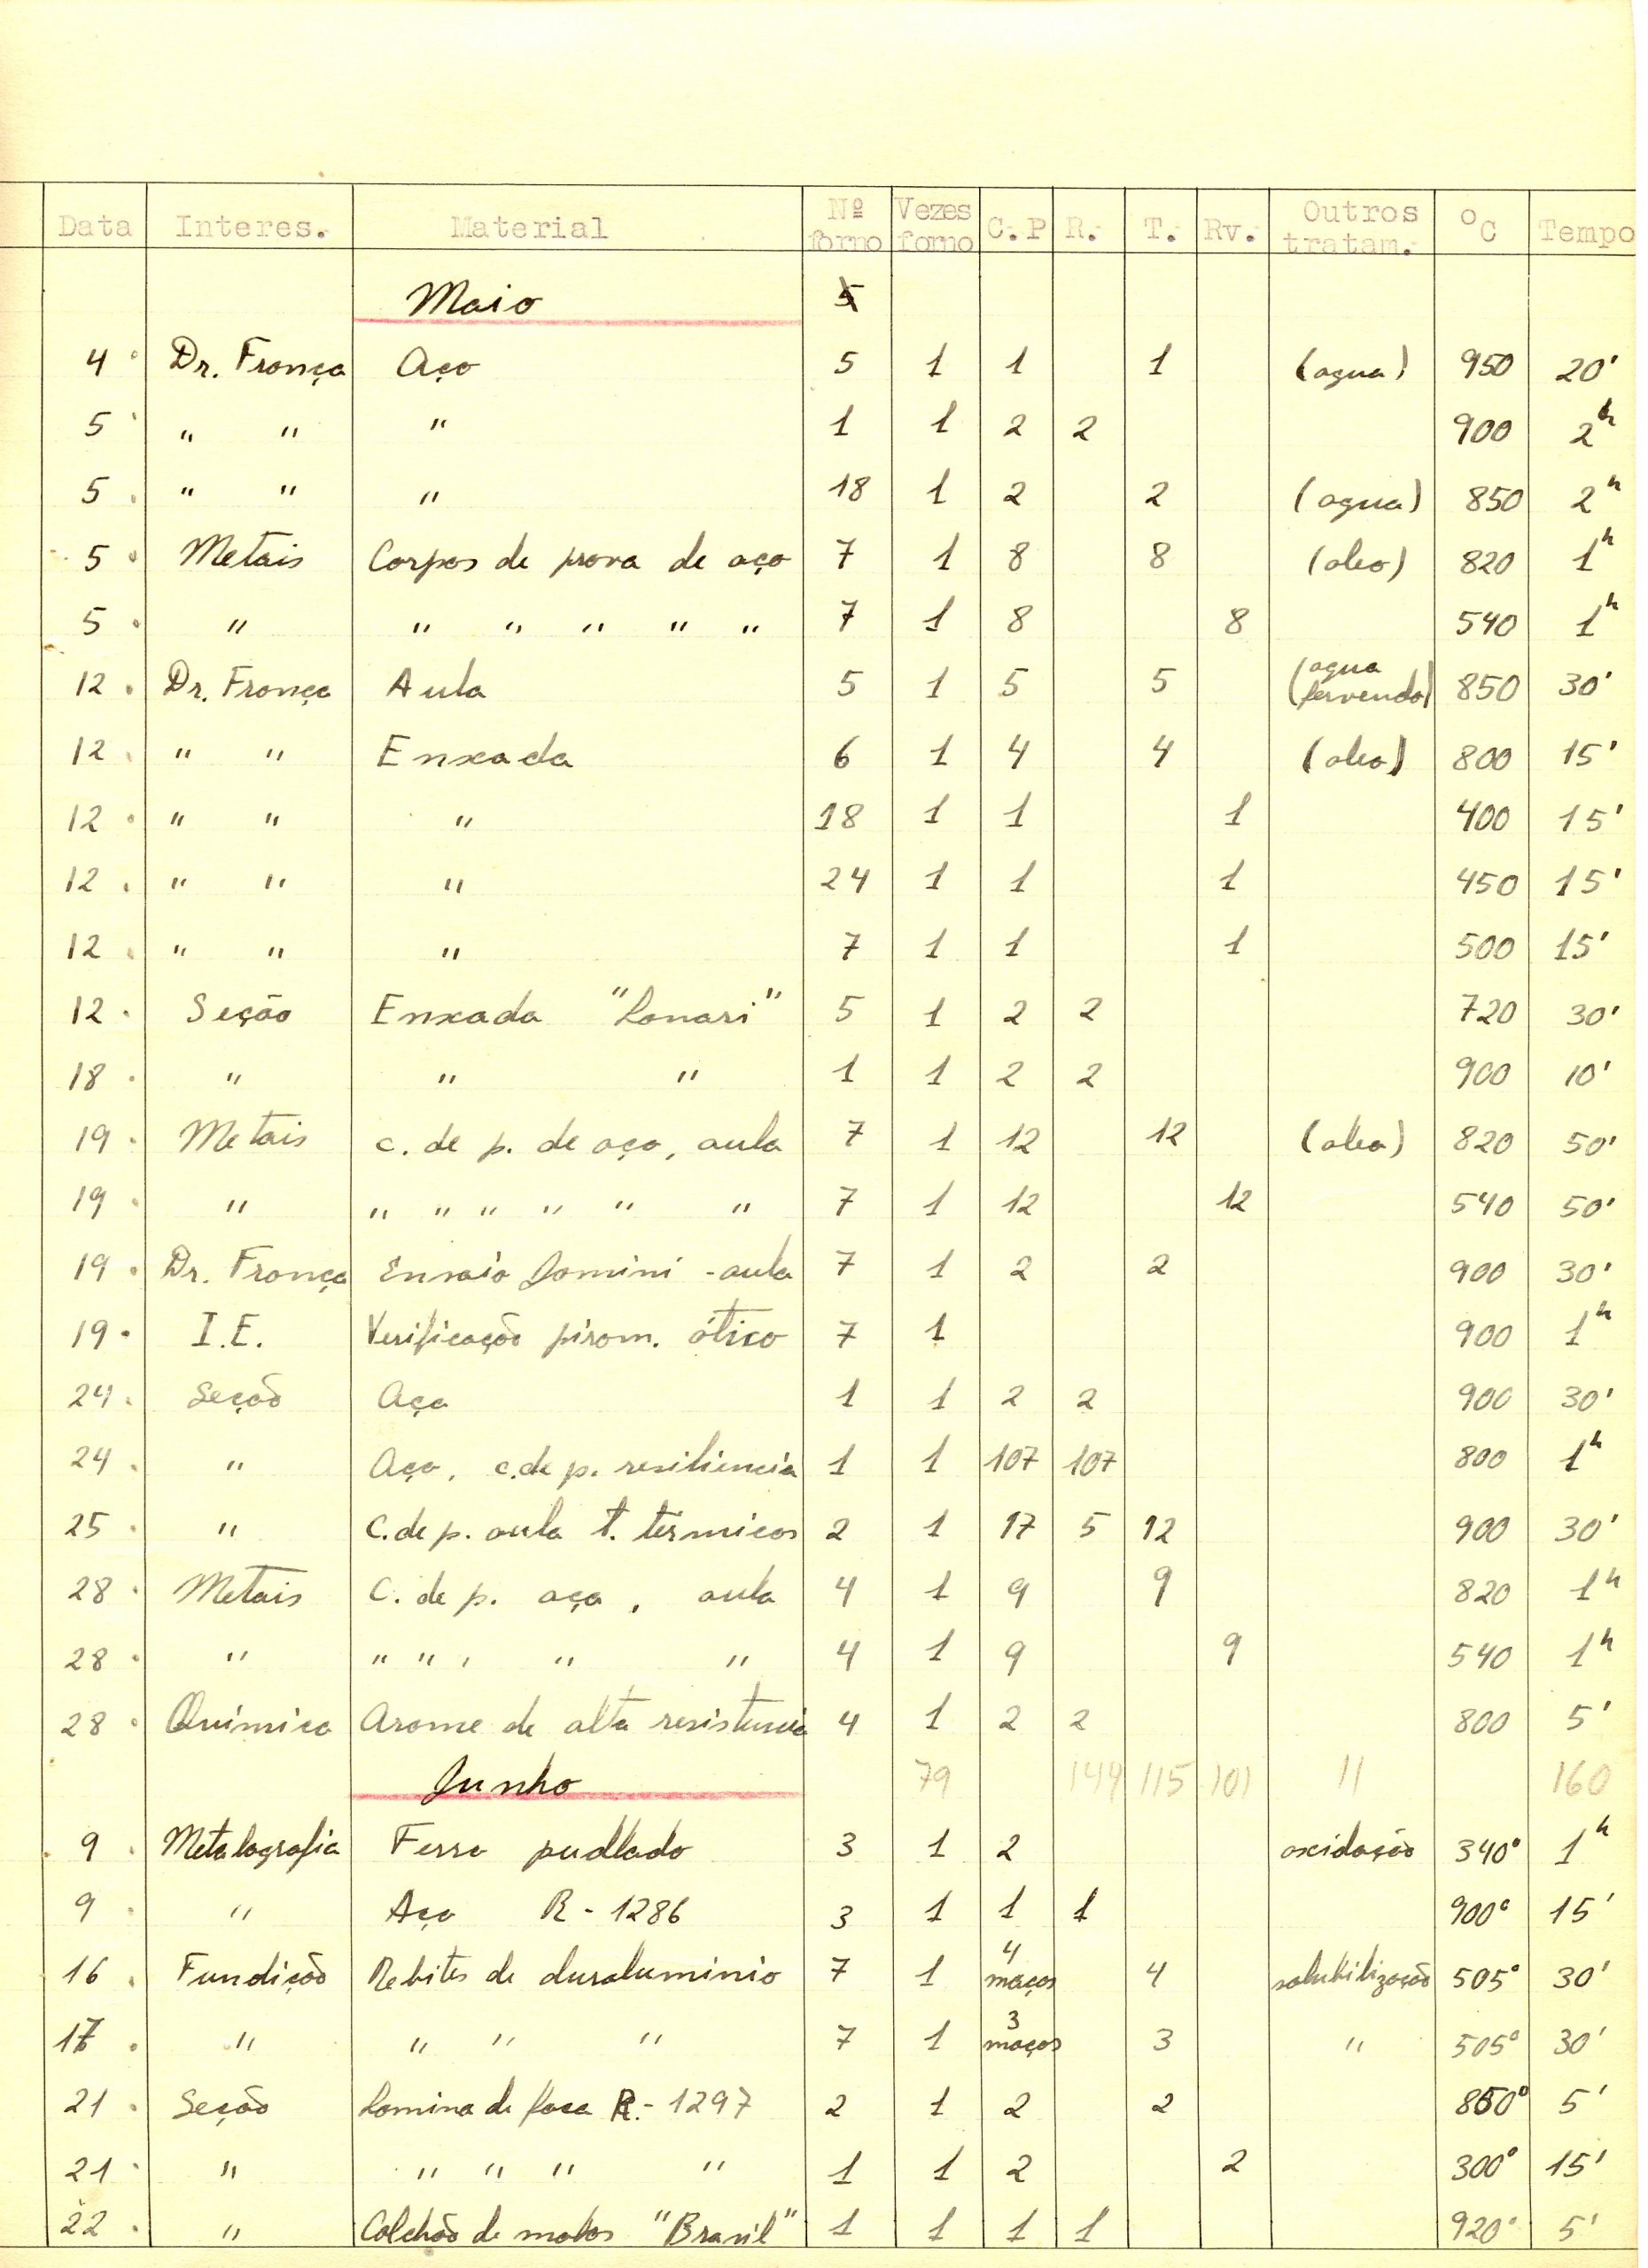 Data Interes. Material Nº forno Vezes forno C.P R. T. Rv. Outros tratam. ºC Tempo
Maio
4 Dr. França Aço 5 1 1 1 (agua) 950 20'
5 " " " 1 1 2 2 900 2h
5 " " " 18 1 2 2 (agua) 850 2h
5 Metais Corpos de prova de aço 7 1 8 8 (oleo) 820 1h
5 " " " " " " 7 1 8 8 540 1h
12 Dr. França Aula 5 1 5 5 (agua fervendo) 850 30'
12 " " Enxada 6 1 4 4 (oleo) 800 15'
12 " " " 18 1 1 1 400 15'
12 " " " 24 1 1 1 450 15'
12 " " " 7 1 1 1 500 15'
12 Seção Enxada "Lanari" 5 1 2 2 720 30'
18 " " " 1 1 2 2 900 10'
19 Metais c. de p. de aço, aula 7 1 12 12 (oleo) 820 50'
19 " " " " " " " 7 1 12 12 540 50'
19 Dr. França Ensaio Jomini - aula 7 1 2 2 900 30'
19 I.E. Verificação pirom. ótico 7 1 900 1h
24 Seção Aço 1 1 2 2 900 30'
24 " Aço, c.de p. resiliencia 1 1 107 107 800 1h
25 " C.de p. aula t. térmicos 2 1 17 5 12 900 30'
28 Metais C. de p. aço, aula 4 1 9 9 820 1h
28 " " " , " " 4 1 9 9 540 1h
28 Química Arame de alta resistencia 4 1 2 2 800 5'
Junho 79 144 115 101 11 160
9 Metalografia Ferro pudlado 3 1 2 oxidação 340° 1h
9 " Aço R - 1286 3 1 1 1 900° 15'
16 Fundição Rebites de duraluminio 7 1 4 maços 4 solubilização 505° 30'
17 " " " " 7 1 3 maços 3 " 505° 30'
21 Seção Lamina de faca R.- 1297 2 1 2 2 850° 5'
21 " " " " " 1 1 2 2 300° 15'
22 " Colchão de molas "Brasil" 1 1 1 1 920° 5'